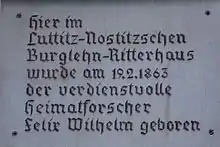 Hier im
Luttitz-Nostitzschen
Burglehn-Ritterhaus
wurde am 19.2.1863
der verdienstvolle
Heimatforscher
Felix Wilhelm geboren